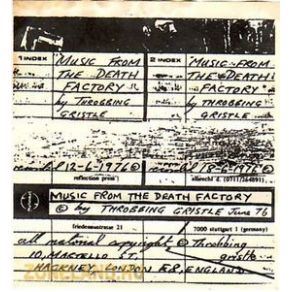 1 INDEX
"MUSIC FROM
THE DEATH
FACTORY"
by THROBBING
GRISTLE
2 INDEX
"MUSIC FROM
THE DEATH
FACTORY"
by THROBBING
GRISTLE
reflection press
albrecht d. (0711/264891)
MUSIC FROM THE DEATH FACTORY
© by THROBBING GRISTLE June 76
friedensstrasse 21
7000 stuttgart 1 (germany)
all national copyright © Throbbing
gristle
10, MARTELLO ST.
HACKNEY, LONDON E.8, ENGLAND